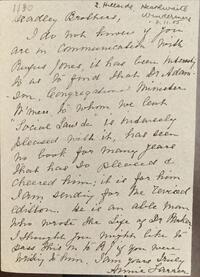 1180
2, Hillside, Heathwaite
Windermere
8.11.05
Headley Brothers,
I do not know if you
are in communication with
Rufus Jones, it has been
to us to find that Dr Adam-
son, Congregational Minister
W'mere to whom we lent
"Social Law &c" is
pleased with it, has seen
no book for many years
that has so pleased &
cheered him; it is for him
I am sending for the revised
edition. He is an able man
who wrote the Life of Dr
I thought you might like to
pass this on to R J if you were
writing to him. I am yours truly
Annie